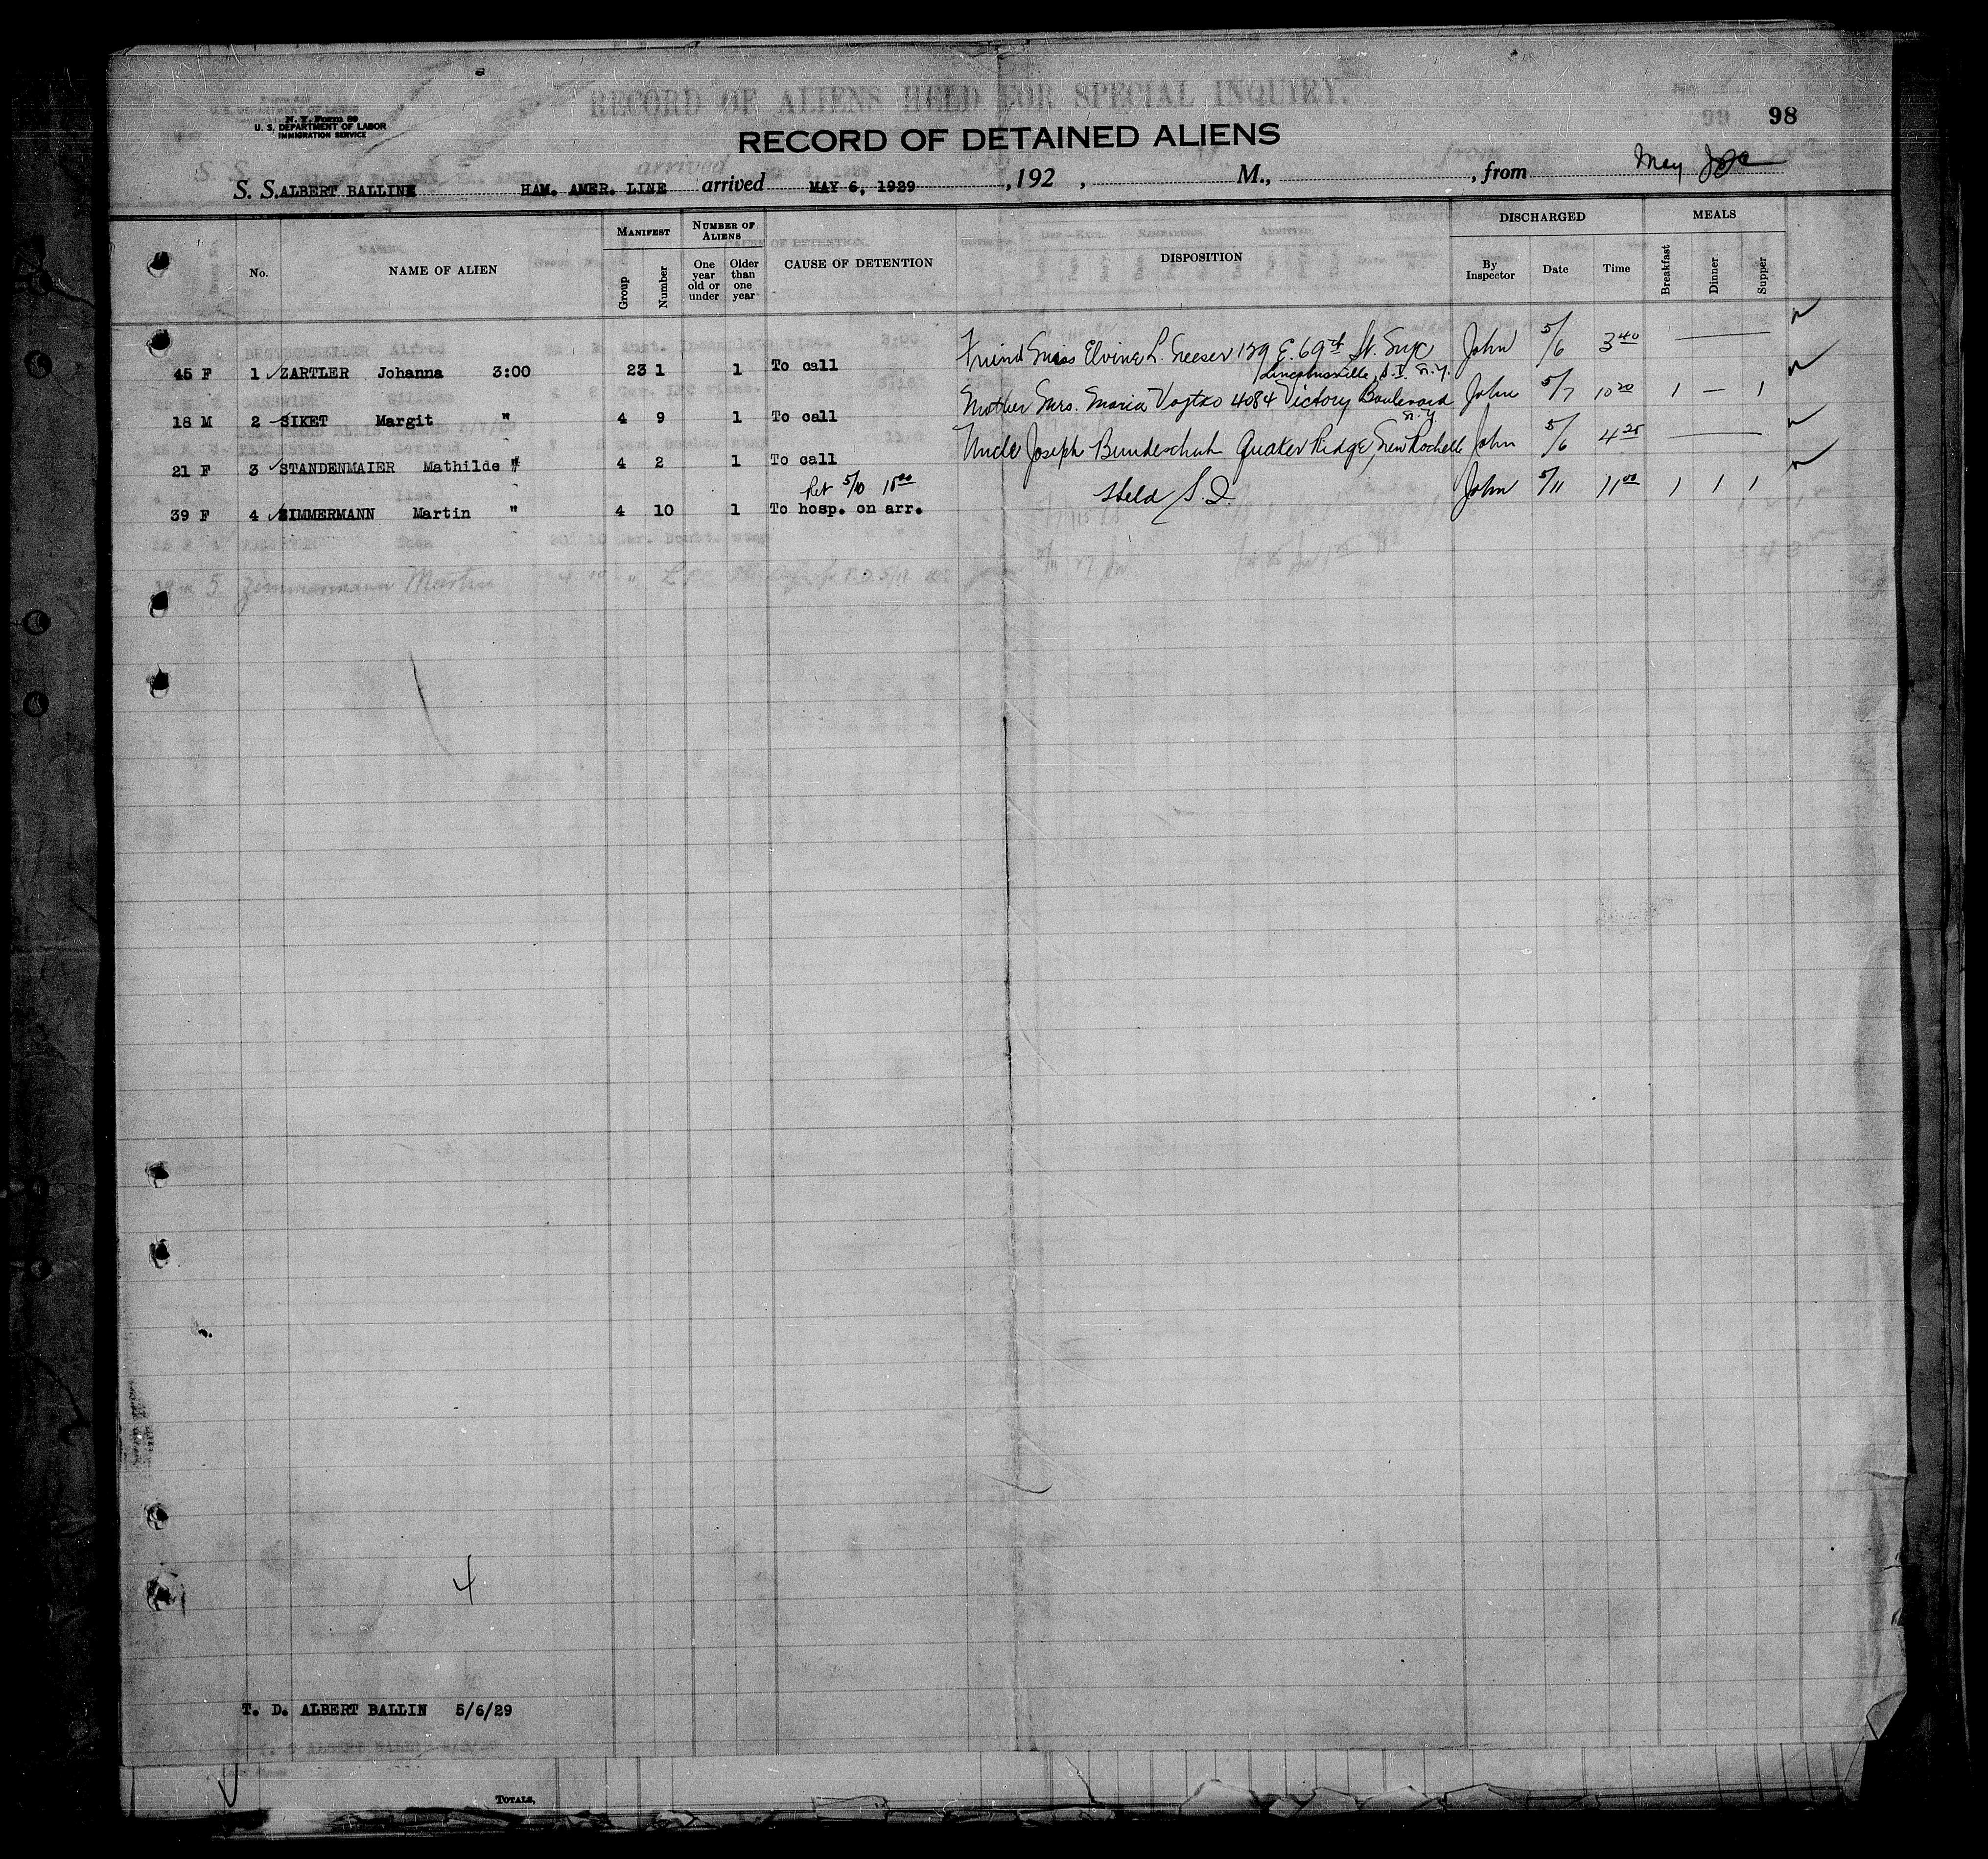 RECORD OF ALIENS HELD FOR SPECIAL INQUIRY.
N. Y. Form 89
U. S. DEPARTMENT OF LABOR
IMMIGRATION SERVICE
99 98
RECORD OF DETAINED ALIENS
S. S. ALBERT BALLIN HAM. AMER. LINE arrived MAY 6, 1929, 192 , M., , from May
No. NAME OF ALIEN MANIFEST Group Number NUMBER OF ALIENS One year old or under Older than one year CAUSE OF DETENTION DISPOSITION DISCHARGED By Inspector Date Time MEALS Breakfast Dinner Supper
45 F 1 ZARTLER Johanna 3:00 23 1 1 To call Friend Miss Elvine L. 129 E. 69th St. NYC John 5/6 3 40
Lincolnsville, S.I. N.Y.
18 M 2 SIKET Margit " 4 9 1 To call Mother Mrs. Maria Vojtko 4084 Victory Boulevard John 5/7 10 20 1 — 1
N.Y.
21 F 3 STANDENMAIER Mathilde " 4 2 1 To call Uncle Joseph Bundeschuh Quaker Ridge, New Rochelle John 5/6 4 25
Ret 5/10 10 00
39 F 4 ZIMMERMANN Martin " 4 10 1 To hosp. on arr. Held S.I. John 5/11 11 00 1 1 1
5 Zimmermann Martin 4 10 "
4
T. D. ALBERT BALLIN 5/6/29
TOTALS,